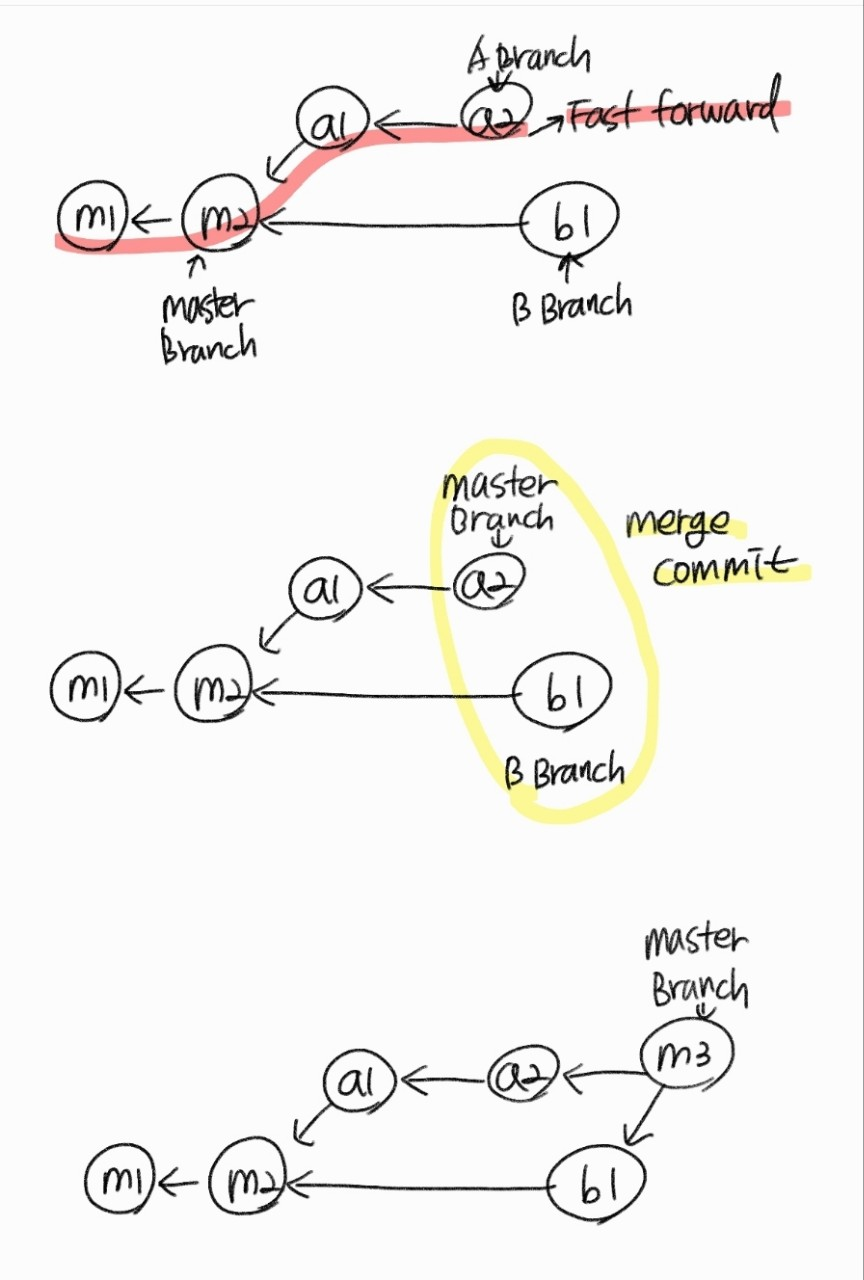 A Branch
a1
a2
Fast forward
m1
m2
b1
master
Branch
B Branch
master
Branch
merge
commit
a1
a2
m1
m2
b1
B Branch
master
Branch
m3
a1
a2
m1
m2
b1